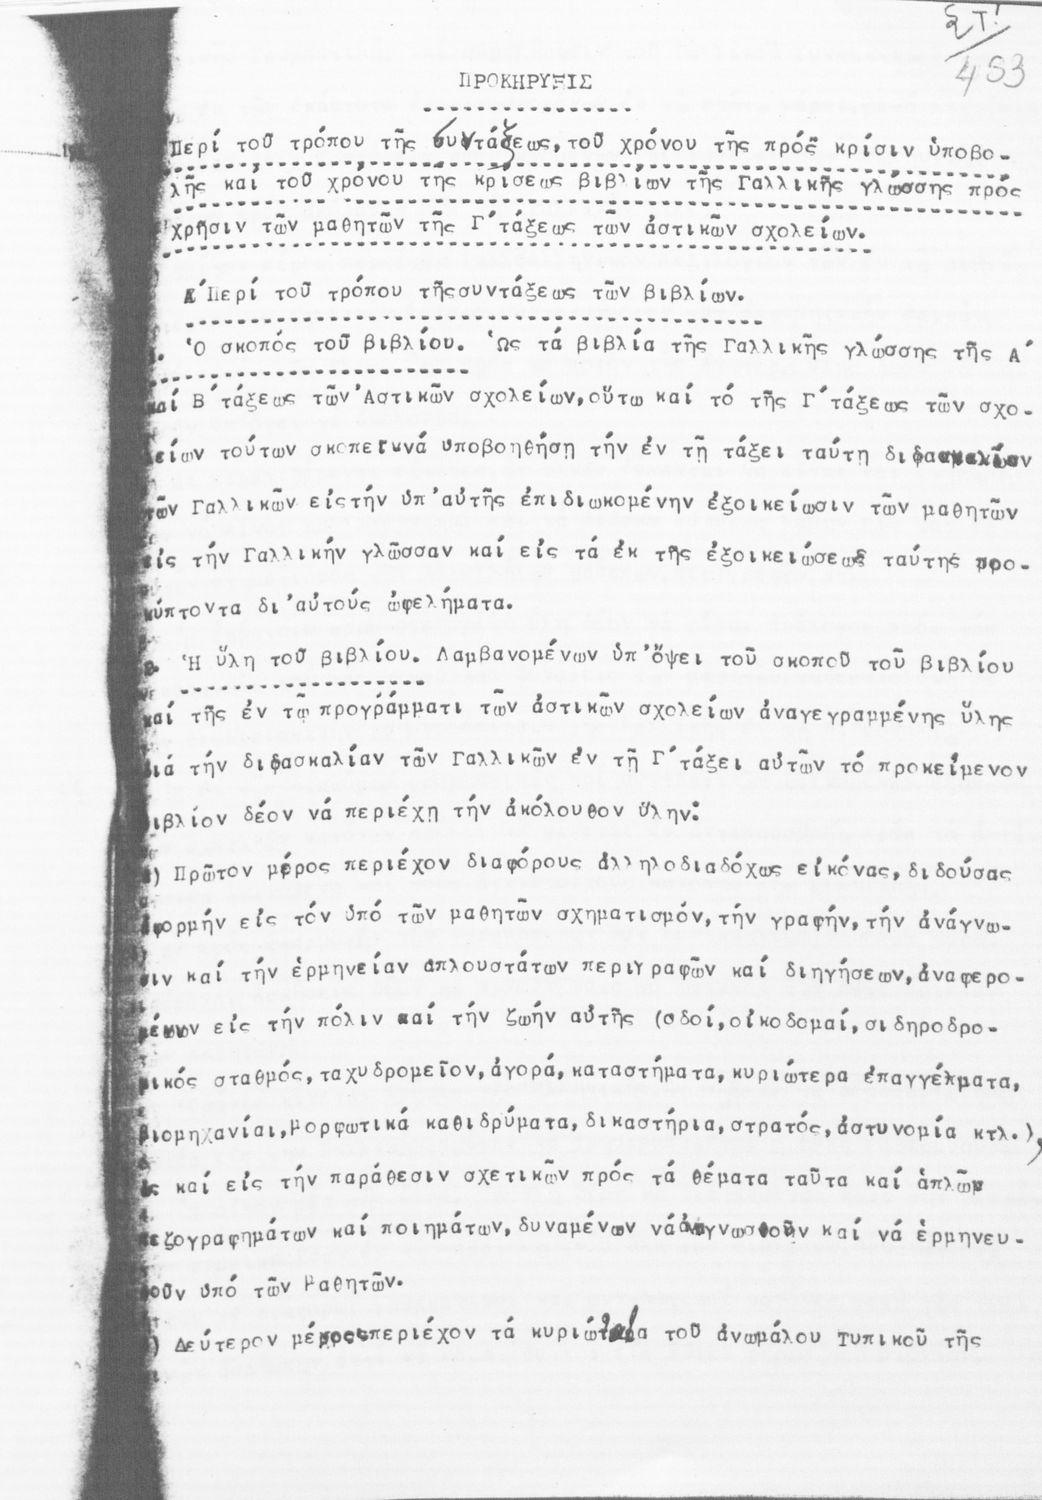 ΣΤ!
453
ΠΡΟΚΗΡΥΞΙΣ
Περί τοῦ τρόπου τῆς συντάξεως, τοῦ χρόνου τῆς πρός κρίσιν ὑποβο-
λῆς καί τοῦ χρόνου της κρίσεως βιβλίων τῆς Γαλλικῆς γλώσσης πρός
χρῆσιν τῶν μαθητῶν τῆς Γ΄τάξεως τῶν ἀστικῶν σχολείων.
Α΄Περί τοῦ τρόπου τῆςσυντάξεως τῶν βιβλίων.
1. Ὁ σκοπός τοῦ βιβλίου. Ὡς τά βιβλία τῆς Γαλλικῆς γλώσσης τῆς Α΄
καί Β΄τάξεως τῶν Ἀστικῶν σχολείων,οὕτω καί τό τῆς Γ΄τάξεως τῶν σχο-
λείων τούτων σκοπεῖ νά ὑποβοηθήσῃ τήν ἐν τῇ τάξει ταύτῃ διδασκαλίαν
τῶν Γαλλικῶν είςτήν ὑπ᾿αὐτῆς ἐπιδιωκομένην ἐξοικείωσιν τῶν μαθητῶν
εἰς τήν Γαλλικήν γλῶσσαν καί εἰς τά ἐκ τῆς ἐξοικειώσεως ταύτης προ-
κύπτοντα δι᾿αὐτούς ὠφελήματα.
2. Ἡ ὕλη τοῦ βιβλίου. Λαμβανομένων ὑπ᾿ὄψει τοῦ σκοποῦ τοῦ βιβλίου
καί τῆς ἐν τῷ προγράμματι τῶν ἀστικῶν σχολείων ἀναγεγραμμένης ὕλης
διά τήν διδασκαλίαν τῶν Γαλλικῶν ἐν τῇ Γ΄τάξει αὐτῶν τό προκείμενον
βιβλίον δέον νά περιέχῃ τήν ἀκόλουθον ὕλην:
α) Πρῶτον μέρος περιέχον διαφόρους ἀλληλοδιαδόχως εἰκόνας,διδούσας
ἀφορμήν εἰς τόν ὑπό τῶν μαθητῶν σχηματισμόν,τήν γραφήν,τήν ἀνάγνω-
σιν καί τήν ἑρμηνείαν ἁπλουστάτων περιγραφῶν καί διηγήσεων,ἀναφερο-
μένων εἰς τήν πόλιν καί τήν ζωήν αὐτῆς (ὁδοί,οἰκοδομαί,σιδηροδρο-
μικός σταθμός,ταχυδρομεῖον,ἀγορά,καταστήματα,κυριώτερα ἐπαγγέλματα,
βιομηχανίαι,μορφωτικά καθιδρύματα,δικαστήρια,στρατός,ἀστυνομία κτλ.),
ὡς καί εἰς τήν παράθεσιν σχετικῶν πρός τά θέματα ταῦτα καί ἁπλῶν
πεζογραφημάτων καί ποιημάτων,δυναμένων νά ἀναγνωσθοῦν καί νά ἑρμηνευ-
θοῦν ὑπό τῶν μαθητῶν.
β) Δεύτερον μέρος περιέχον τά κυριώτερα τοῦ ἀνωμάλου Τυπικοῦ τῆς